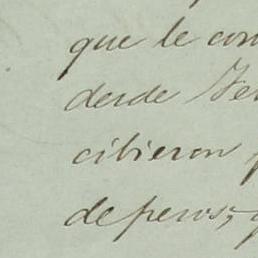 que le con
desde Fe
cibieron
de pesos,